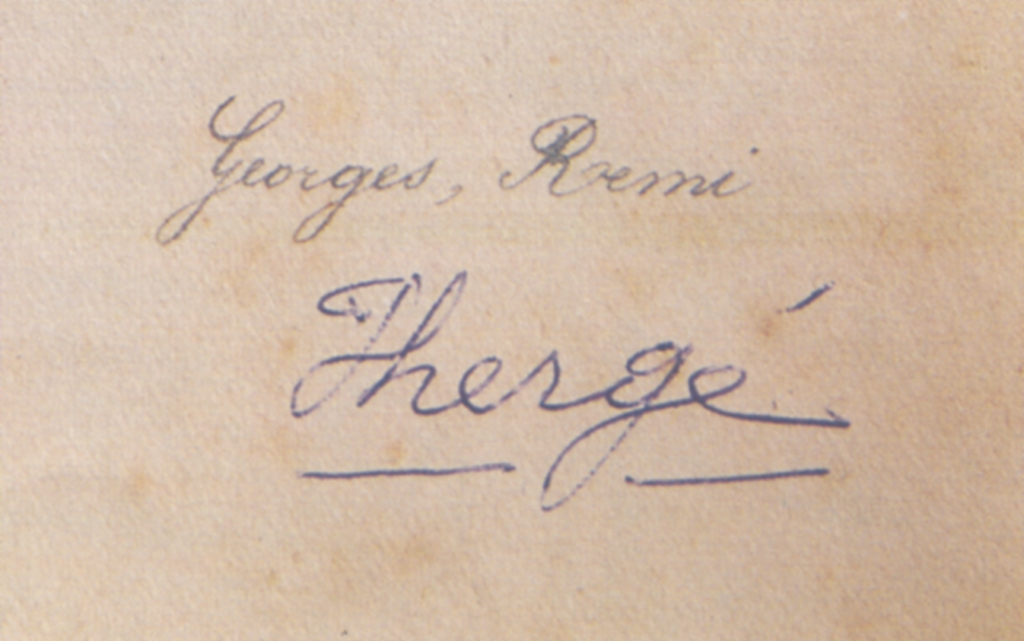 Georges, Remi
Hergé